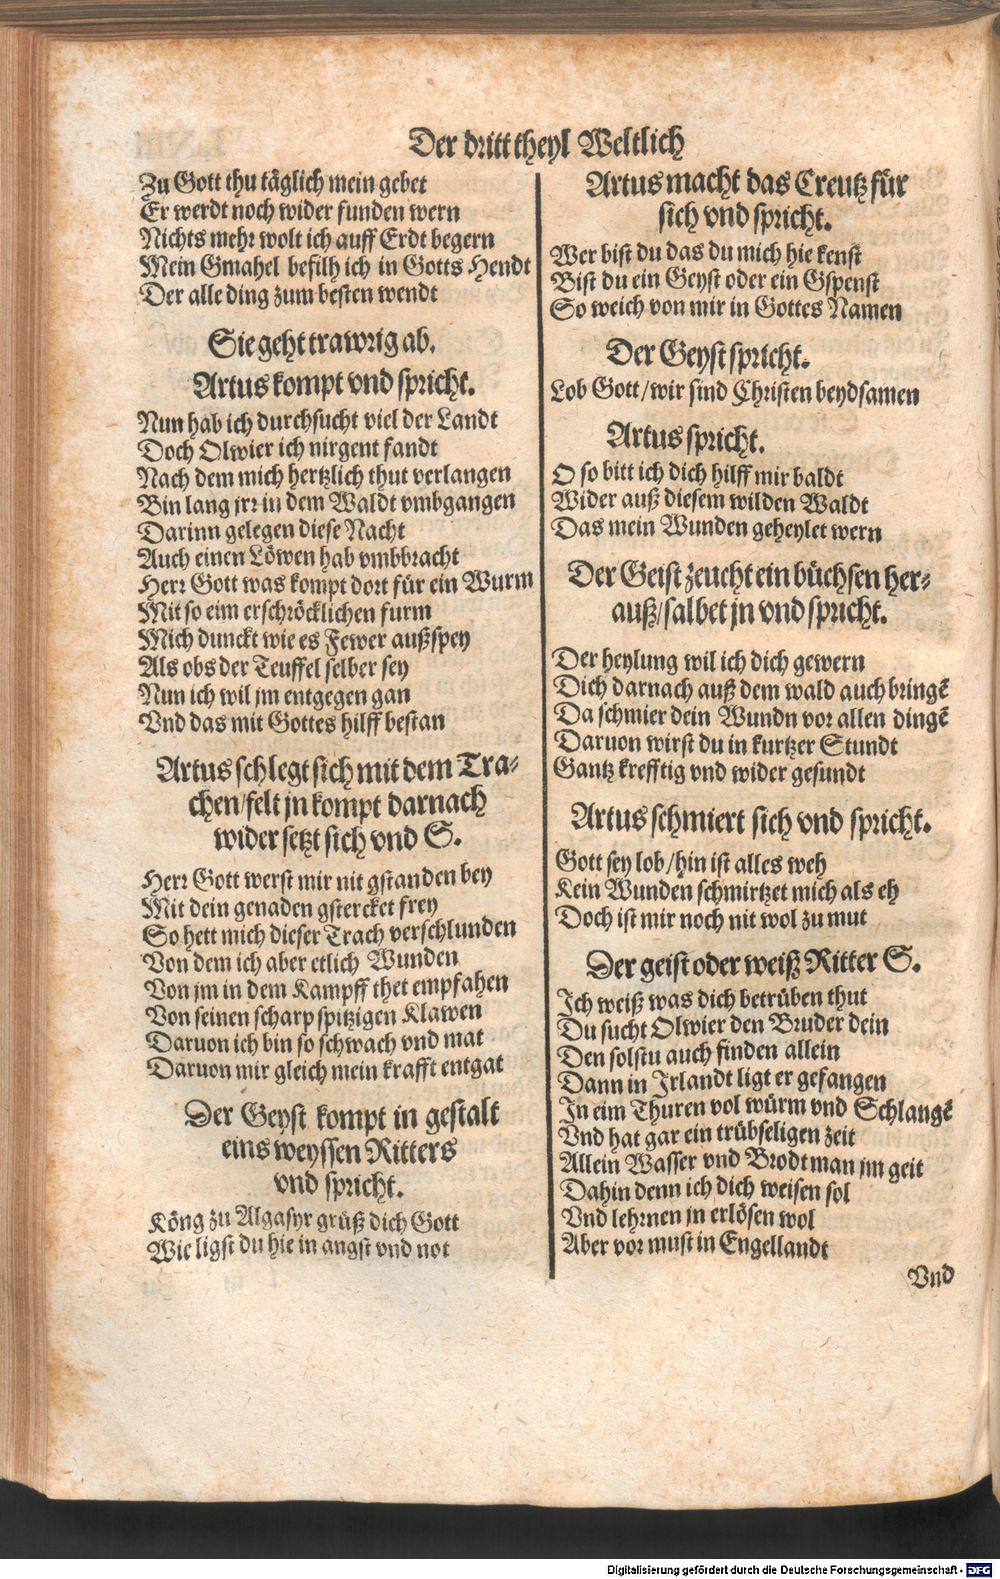 Der dritt theyl Weltlich
Zu Gott thu täglich mein gebet
Er werdt noch wider funden wern
Nichts mehr wolt ich auff Erdt begern
Mein Gmahel befilh ich in Gotts Hendt
Der alle ding zum besten wendt
Sie geht trawrig ab.
Artus kompt vnd spricht.
Nun hab ich durchsucht viel der Landt
Doch Olwier ich nirgent fandt
Nach dem mich hertzlich thut verlangen
Bin lang jrr in dem Waldt vmbgangen
Darinn gelegen diese Nacht
Auch einen Löwen hab vmbbracht
Herr Gott was kompt dort für ein Wurm
Mit so eim erschröcklichen furm
Mich dunckt wie es Fewer außspey
Als obs der Teuffel selber sey
Nun ich wil jm entgegen gan
Vnd das mit Gottes hilff bestan
Artus schlegt sich mit dem Tra-
chen/felt jn kompt darnach
wider setzt sich vnd S.
Herr Gott werst mir nit gstanden bey
Mit dein genaden gstercket frey
So hett mich dieser Trach verschlunden
Von dem ich aber etlich Wunden
Von jm in dem Kampff thet empfahen
Von seinen scharp spitzigen Klawen
Daruon ich bin so schwach vnd mat
Daruon mir gleich mein krafft entgat
Der Geyst kompt in gestalt
eins weyssen Ritters
vnd spricht.
Köng zu Algasyr grüß dich Gott
Wie ligst du hie in angst vnd not
Artus macht das Creutz für
sich vnd spricht.
Wer bist du das du mich hie kenst
Bist du ein Geyst oder ein Gspenst
So weich von mir in Gottes Namen
Der Geyst spricht.
Lob Gott/wir sind Christen beydsamen
Artus spricht.
O so bitt ich dich hilff mir baldt
Wider auß diesem wilden Waldt
Das mein Wunden geheylet wern
Der Geist zeucht ein büchsen her-
auß/salbet jn vnd spricht.
Der heylung wil ich dich gewern
Dich darnach auß dem wald auch bringē
Da schmier dein Wundn vor allen dingē
Daruon wirst du in kurtzer Stundt
Gantz krefftig vnd wider gesundt
Artus schmiert sich vnd spricht.
Gott sey lob/hin ist alles weh
Kein Wunden schmirtzet mich als eh
Doch ist mir noch nit wol zu mut
Der geist oder weiß Ritter S.
Ich weiß was dich betrüben thut
Du sucht Olwier den Bruder dein
Den solstu auch finden allein
Dann in Irlandt ligt er gefangen
In eim Thuren vol würm vnd Schlangē
Vnd hat gar ein trübseligen zeit
Allein Wasser vnd Brodt man jm geit
Dahin denn ich dich weisen sol
Vnd lehrnen jn erlösen wol
Aber vor must in Engellandt
Vnd
Digitalisierung gefördert durch die Deutsche Forschungsgemeinschaft - DFG